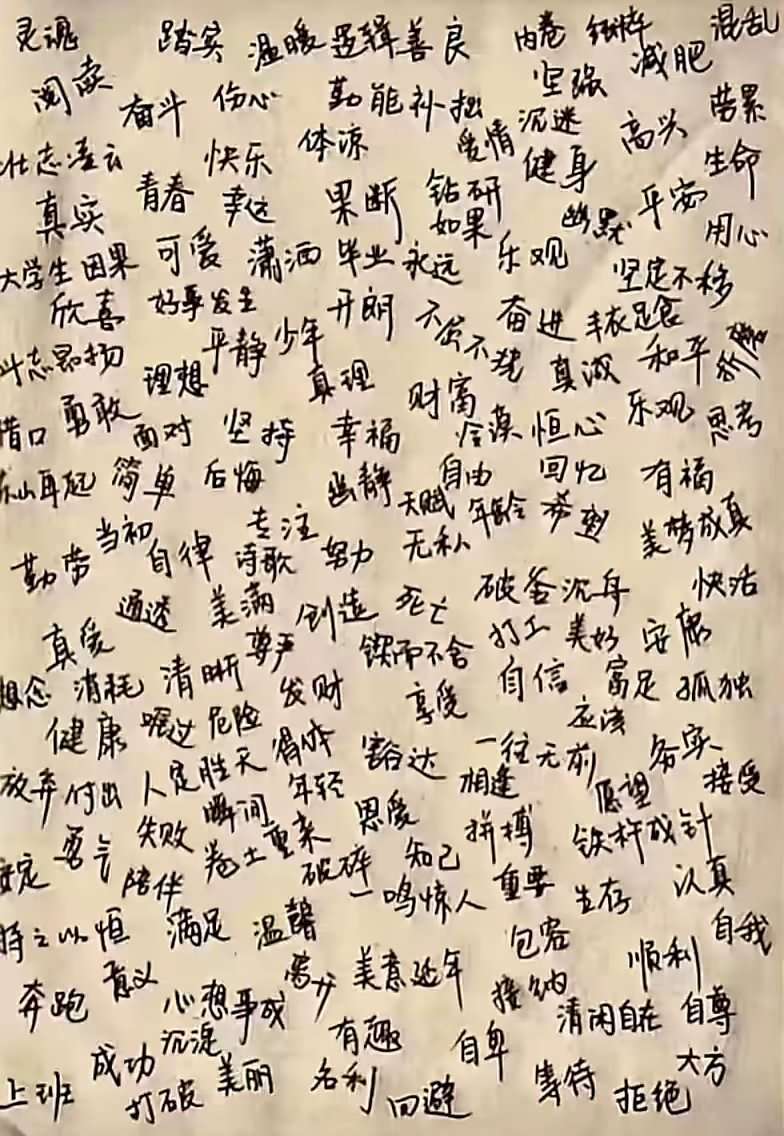 灵魂 踏实 温暖 逻辑 善良 内卷 纯粹 混乱
阅读 奋斗 伤心 勤能补拙 坚强 减肥
壮志凌云 快乐 体凉 爱情 沉迷 高兴 劳累
真实 青春 幸运 果断 钻研 健身 生命
大学生 因果 可爱 潇洒 毕业 永远 如果 乐观 幽默 平安 用心
欣喜 好事发生 开朗 不屈不挠 奋进 丰衣足食 坚定不移
斗志昂扬 理想 平静 少年 真理 财富 真诚 和平
借口 勇敢 面对 坚持 幸福 冷漠 恒心 乐观 思考
东山再起 简单 后悔 幽静 自由 回忆 有福
勤劳 当初 自律 专注 诗歌 努力 天赋 无私 年龄 希望 美梦成真
真爱 通透 美满 创造 死亡 破釜沉舟 快活
想念 消耗 清晰 尊严 锲而不舍 打工 美好 安康
健康 嘱过 危险 发财 享受 自信 富足 孤独
放弃 付出 人定胜天 得体 豁达 一往无前 应该 务实
安定 勇气 失败 瞬间 年轻 恩爱 相逢 愿望 接受
陪伴 卷土重来 破碎 知己 拼搏 铁杵成针
持之以恒 满足 温馨 一鸣惊人 重要 生存 认真
奔跑 意义 心想事成 美意延年 包容 接纳 顺利 自我
上班 成功 沉淀 有趣 自卑 清闲自在 自尊
打破 美丽 名利 回避 等待 拒绝 大方